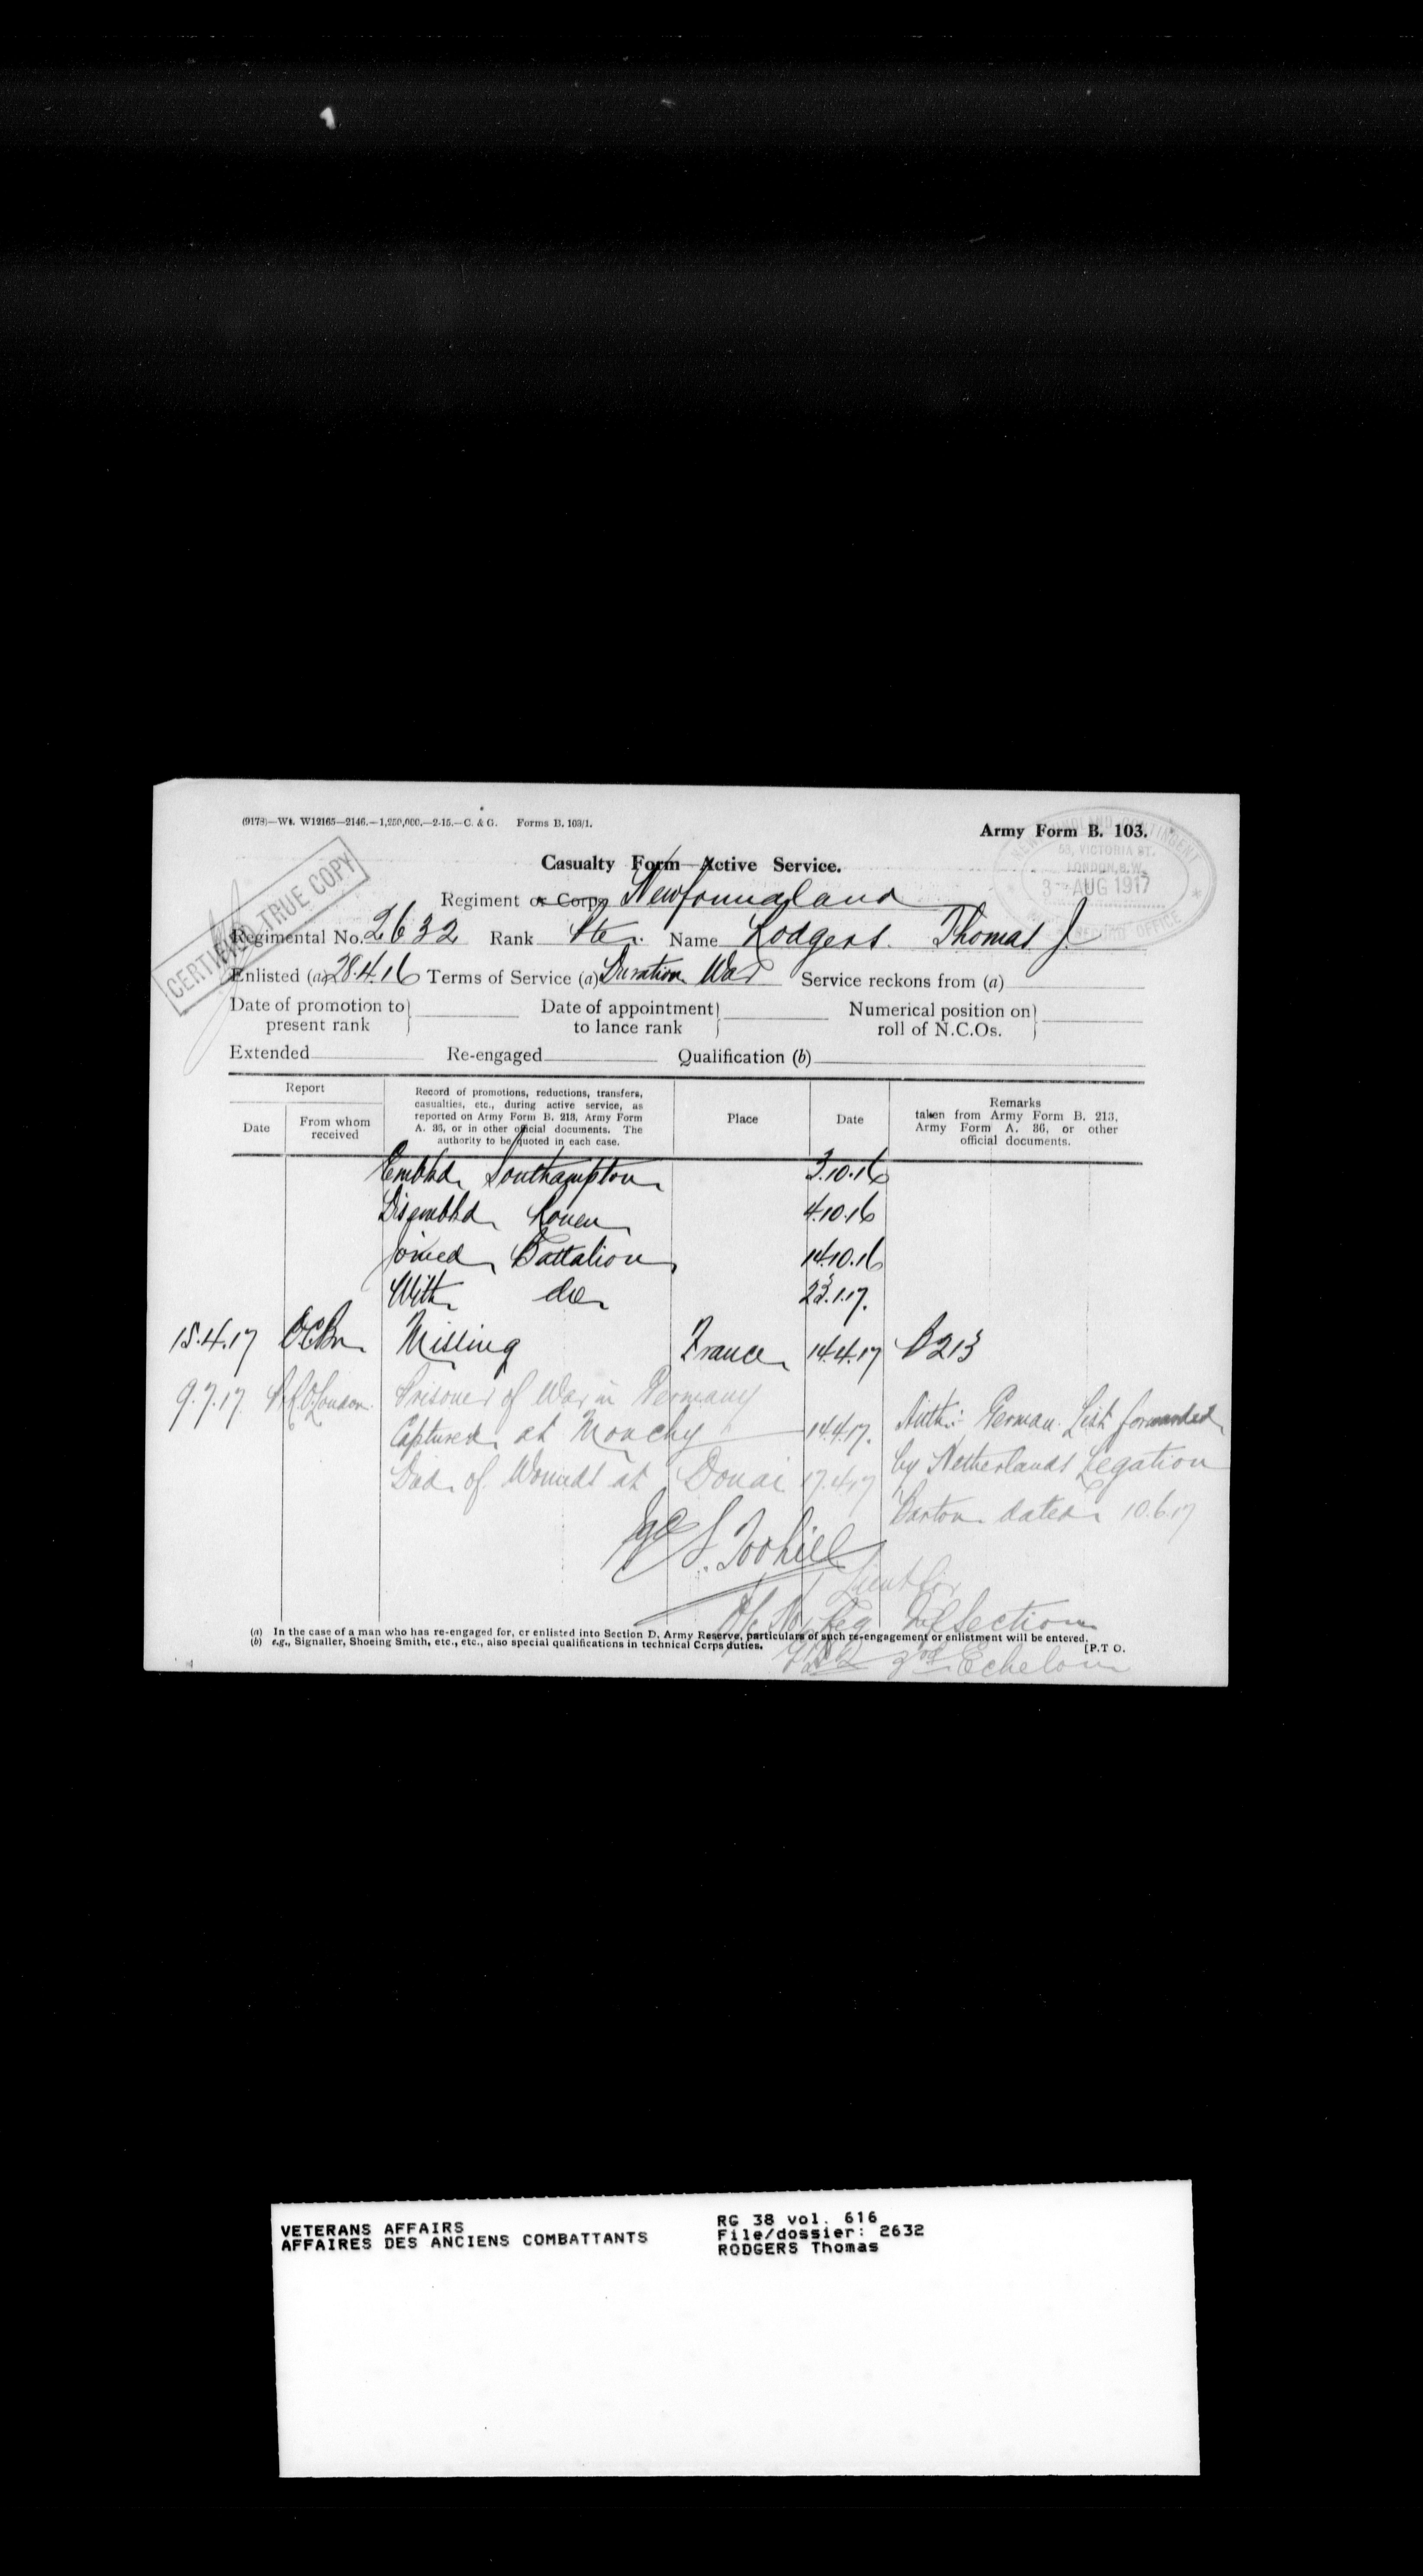 (9178)—Wt. W12165—2146.—1,250,000.—2-15.—C. & G. Forms B. 103/1.
Army Form B. 103.
NEWFOUNDLAND CONTINGENT
58, VICTORIA ST.
LONDON, S.W.
3 AUG 1917
RECORD OFFICE
CERTIFIED TRUE COPY
Casualty Form—Active Service.
Regiment or Corps Newfoundland
Regimental No. 2632 Rank Pte. Name Rodgers. Thomas J.
Enlisted (a) 28.4.16 Terms of Service (a) Duration War Service reckons from (a)
Date of promotion to present rank
Date of appointment to lance rank
Numerical position on roll of N.C.Os.
Extended Re-engaged Qualification (b)
Report
Date
From whom received
Record of promotions, reductions, transfers, casualties, etc., during active service, as reported on Army Form B. 213, Army Form A. 36, or in other official documents. The authority to be quoted in each case.
Place
Date
Remarks
taken from Army Form B. 213, Army Form A. 36, or other official documents.
Embkd Southampton 3.10.16
Disembkd Rouen 4.10.16
Joined Battalion 14.10.16
With do 23.1.17.
15.4.17 OCBn Missing France 14.4.17 B213
9.7.17 London. Prisoner of War in Germany
Captured at Monchy 14.4.17. Auth:- German List forwarded
Died of Wounds at Douai 17.4.17 by Netherlands Legation
dated 10.6.17
Sgd
Lieut for
Section
3rd Echelon
(a) In the case of a man who has re-engaged for, or enlisted into Section D, Army Reserve, particulars of such re-engagement or enlistment will be entered.
(b) e.g., Signaller, Shoeing Smith, etc., etc., also special qualifications in technical Corps duties.
[P.T O.
VETERANS AFFAIRS
AFFAIRES DES ANCIENS COMBATTANTS
RG 38 vol. 616
File/dossier: 2632
RODGERS Thomas